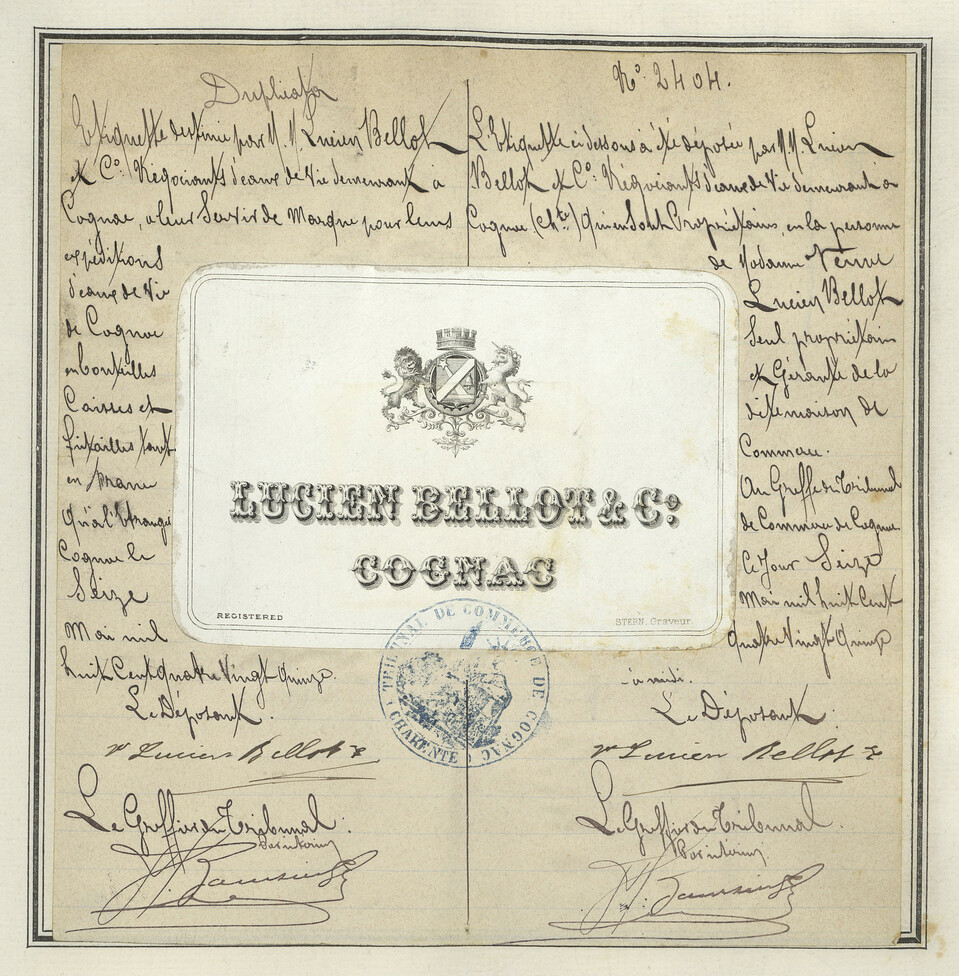 Duplicata
Etiquette destinée par M.M. Lucien Bellot
et Cº. Négociants d'eaux de Vie demeurant a
Cognac, a leur Servir de Marque pour leurs
expéditions
d'eaux de Vie
de Cognac
en bouteilles
Caisses et
futailles tant
en France
qu'a l'étranger
Cognac le
Seize
Mai mil
huit Cent quatre Vingt quinze.
Le Déposant.
Vᵉ Lucien Bellot &
Le Greffier du Tribunal.
Par interim
Nº. 2404.
L'Etiquette ci dessous à été déposée par M.M. Lucien
Bellot et Cº. Négociants d'eaux de Vie demeurant a
Cognac, (Chᵗᵉ) qui en sont Propriétaires, en la personne
de Madame Veuve
Lucien Bellot
Seul propriétaire
et Gérante de la
dite maison de
Commerce.
Au Greffe du Tribunal
de Commerce de Cognac
Ce Jour Seize
Mai mil huit Cent
quatre Vingt quinze
à midi.
Le Déposant.
Vᵉ Lucien Bellot &
Le Greffier du Tribunal.
Par interim
LUCIEN BELLOT & Cº.
COGNAC
REGISTERED
STERN, Graveur.
TRIBUNAL DE COMMERCE DE COGNAC
(CHARENTE)